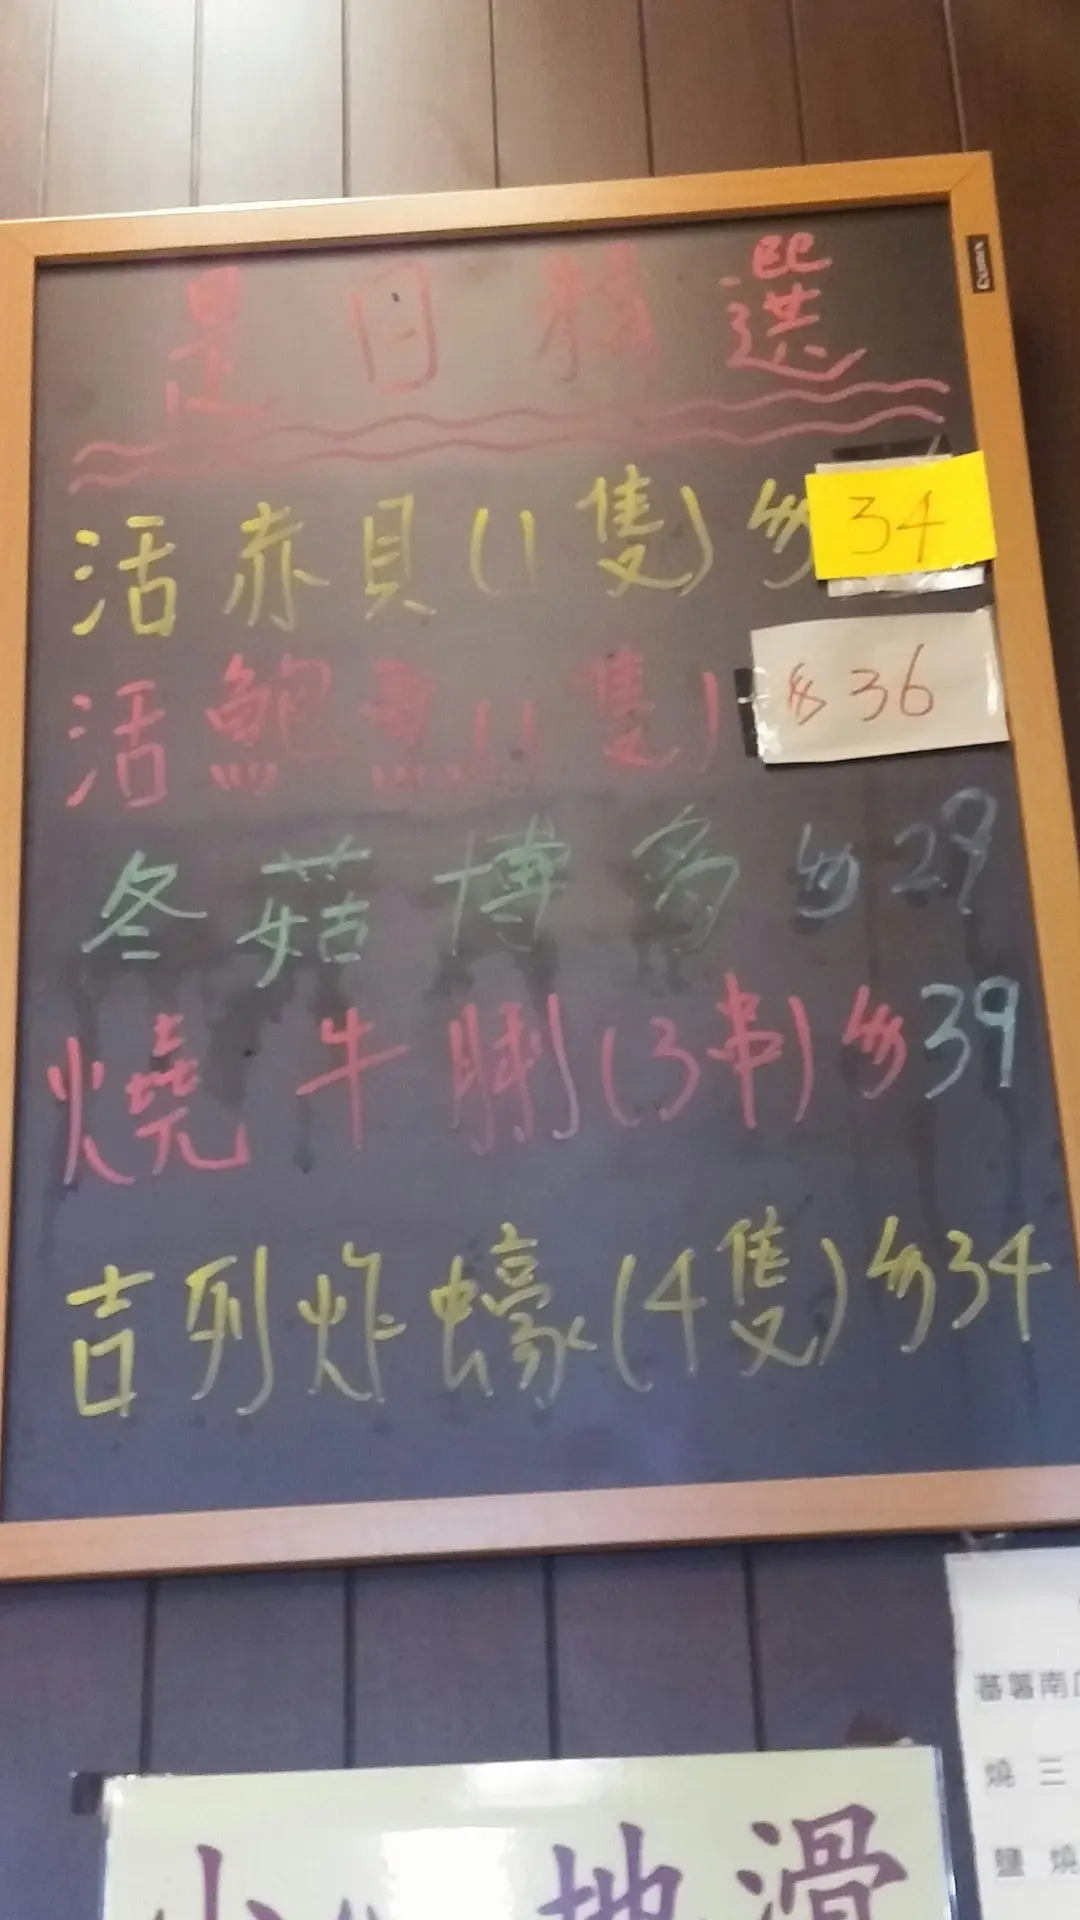 是日精選
活赤貝(1隻)$34
活鮑魚(1隻)$36
冬菇博多$29
燒牛脷(3串)$39
吉列炸蠔(4隻)$34
蕃薯南
燒三
鹽燒
小心地滑